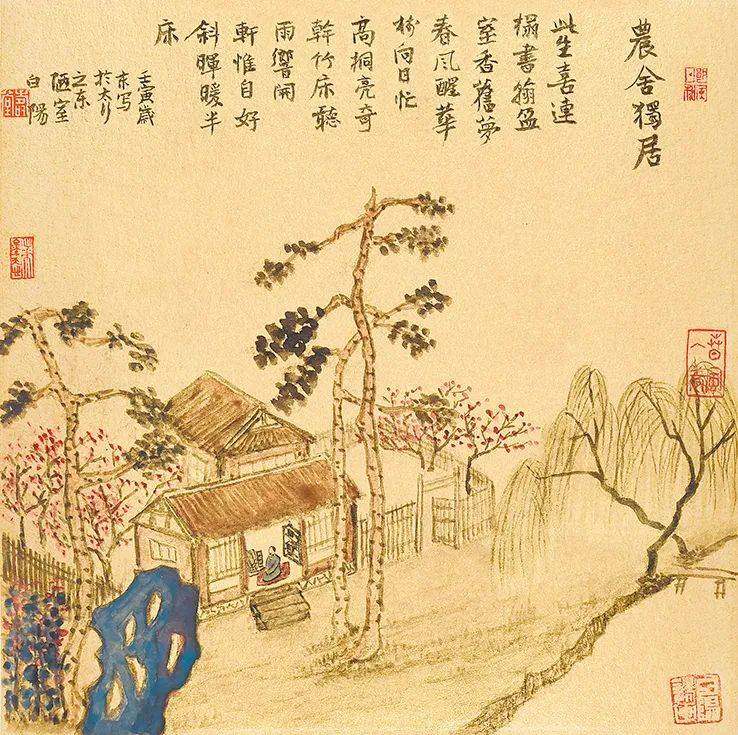 農舍獨居
此生喜連
榻書翰盈
室香舊夢
春風醒華
向日忙
高桐亮奇
幹竹床聽
雨響閑
軒惟自好
斜暉暖半
床
壬寅歲
写
於太行
之东
陋室
白陽